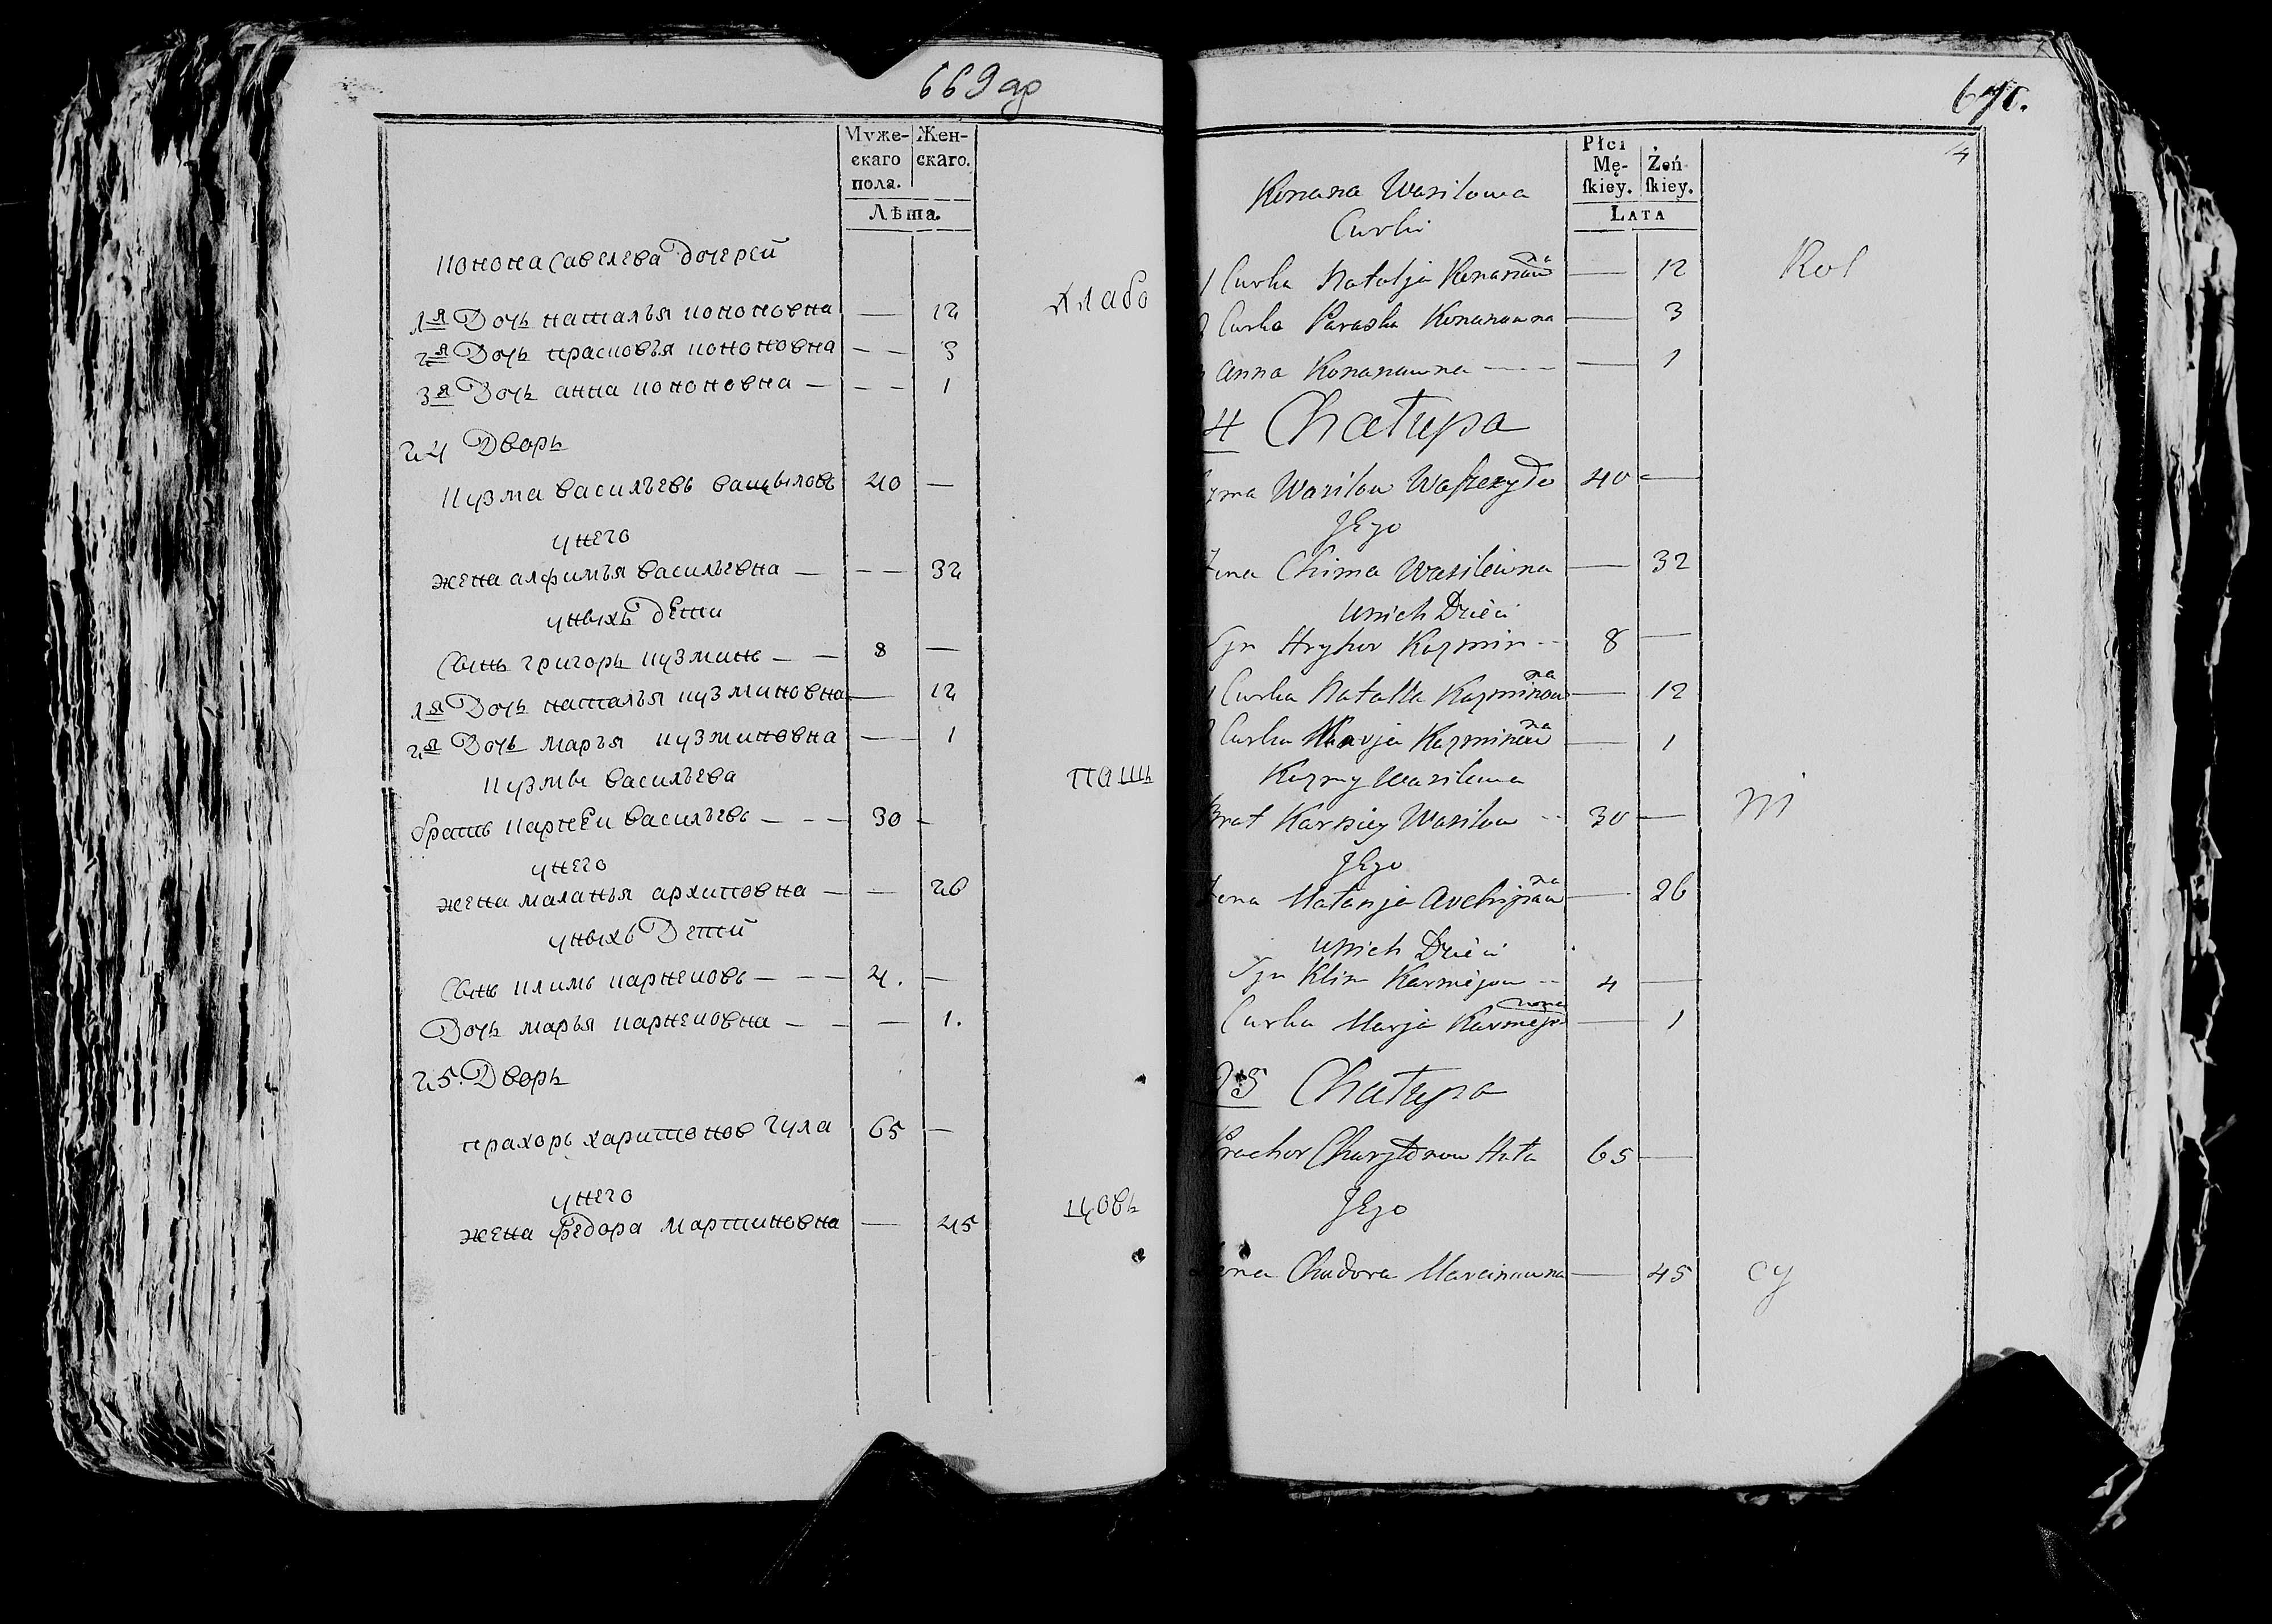 669 ар
Муже-
скаго
пола.
Жен-
скаго.
Лѣта.
Конона Савелева дочерей
1я Дочь наталья кононовна — 12
2я Дочь прасковъя кононовна — — 3
3я Дочь анна кононовна — — — 1
24 Дворъ
Кузма васильевъ 40 —
у него
жена алфимъя васильевна — — — 32
у ныхъ дети
Сынъ григоръ кузминъ — — 8 —
1я Дочь наталъя кузминовна — 12
2я Дочь маръя кузминовна — 1
Кузмы васильева
братъ карнеи васильевъ — — — 30 —
у него
жена маланъя архиповна — — 26
у ныхъ Детей
Сынъ климъ карнеиовъ — — — 4. —
Дочь маръя карнеиовна — — — 1.
25. Дворъ
прахоръ харитонов гула 65 —
у него
жена федора мартиновна — 45
пашъ
цовъ
Płci
Mę-
ſkiey.
Żeń-
ſkiey.
Lata
Konana Wasilowa
Curki
1 Curka Natalja Konanowna — 12
Curka Paraska Konanowna — 3
Anna Konanowna — 1
4 Chałupa
Wasilow 40 —
Jego
Chima Wasilewna — 32
Unich Dzieci
Syn Hryhor Kuzmin 8 —
1 Curka Natalla Kuzminowna — 12
Curka Marja Kuzminowna — 1
Kuzmy Wasilowa
Brat Karniey Wasilow 30 —
Jego
Małanja Archipowna — 26
Unich Dzieci
Syn Klim Karniejow 4 —
Curka Marja Karniejowna — 1
25 Chałupa
Prachor Charytonow Huła 65 —
Jego
Chadora Marcinowna — 45